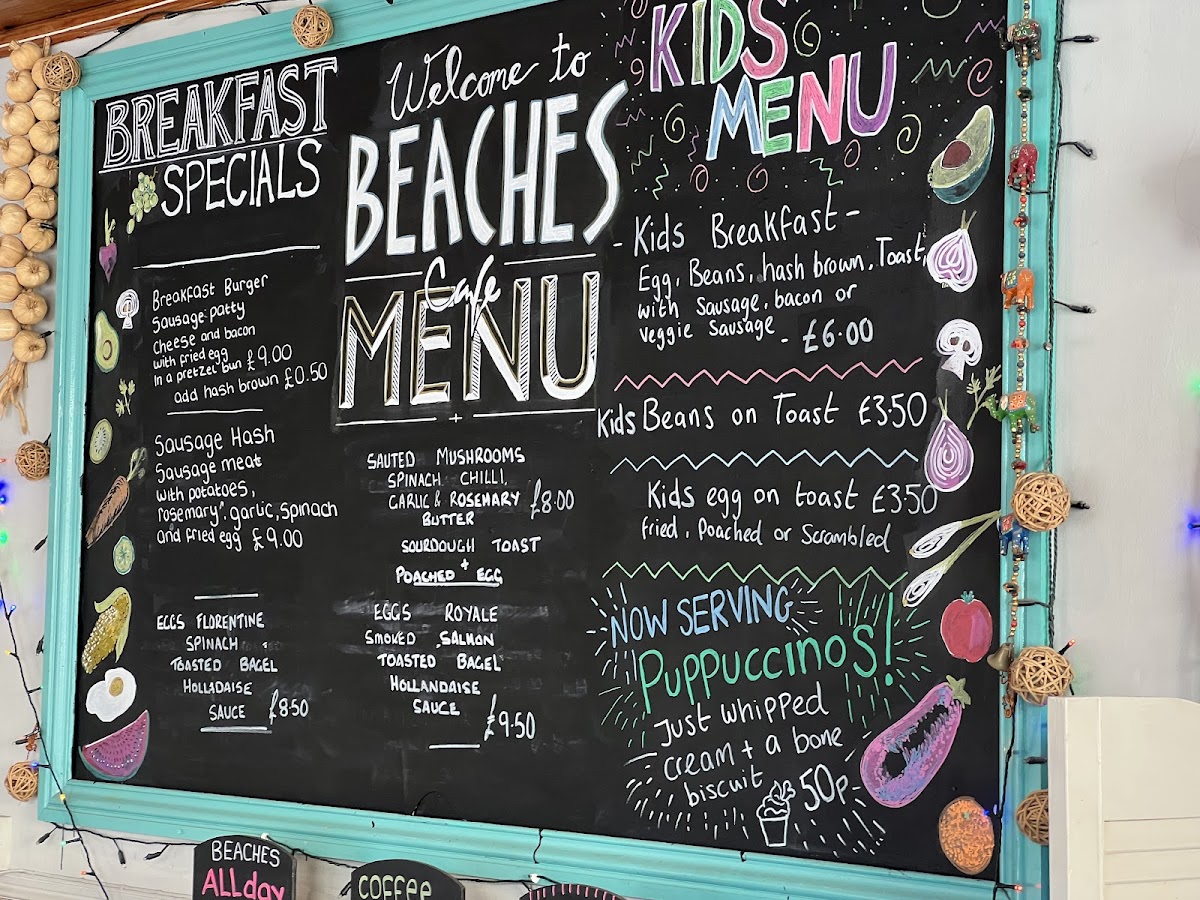 BREAKFAST
SPECIALS
Breakfast Burger
Sausage patty
Cheese and bacon
with fried egg
In a pretzel bun £9.00
add hash brown £0.50
Sausage Hash
Sausage meat
with potatoes,
rosemary, garlic, spinach
and fried egg £9.00
EGGS FLORENTINE
SPINACH
TOASTED BAGEL
HOLLADAISE
SAUCE £8.50
Welcome to
BEACHES
Cafe
MENU
SAUTED MUSHROOMS
SPINACH CHILLI,
GARLIC & ROSEMARY £8.00
BUTTER
SOURDOUGH TOAST
+
POACHED EGG
EGGS ROYALE
SMOKED SALMON
TOASTED BAGEL
HOLLANDAISE
SAUCE £9.50
KIDS
MENU
- Kids Breakfast -
Egg, Beans, hash brown, Toast,
with Sausage, bacon or
veggie Sausage - £6.00
Kids Beans on Toast £3.50
Kids egg on toast £3.50
fried, Poached or Scrambled
NOW SERVING
PUPPUCCINOS!
Just whipped
cream + a bone
biscuit 50p
BEACHES
ALL day
COFFEE